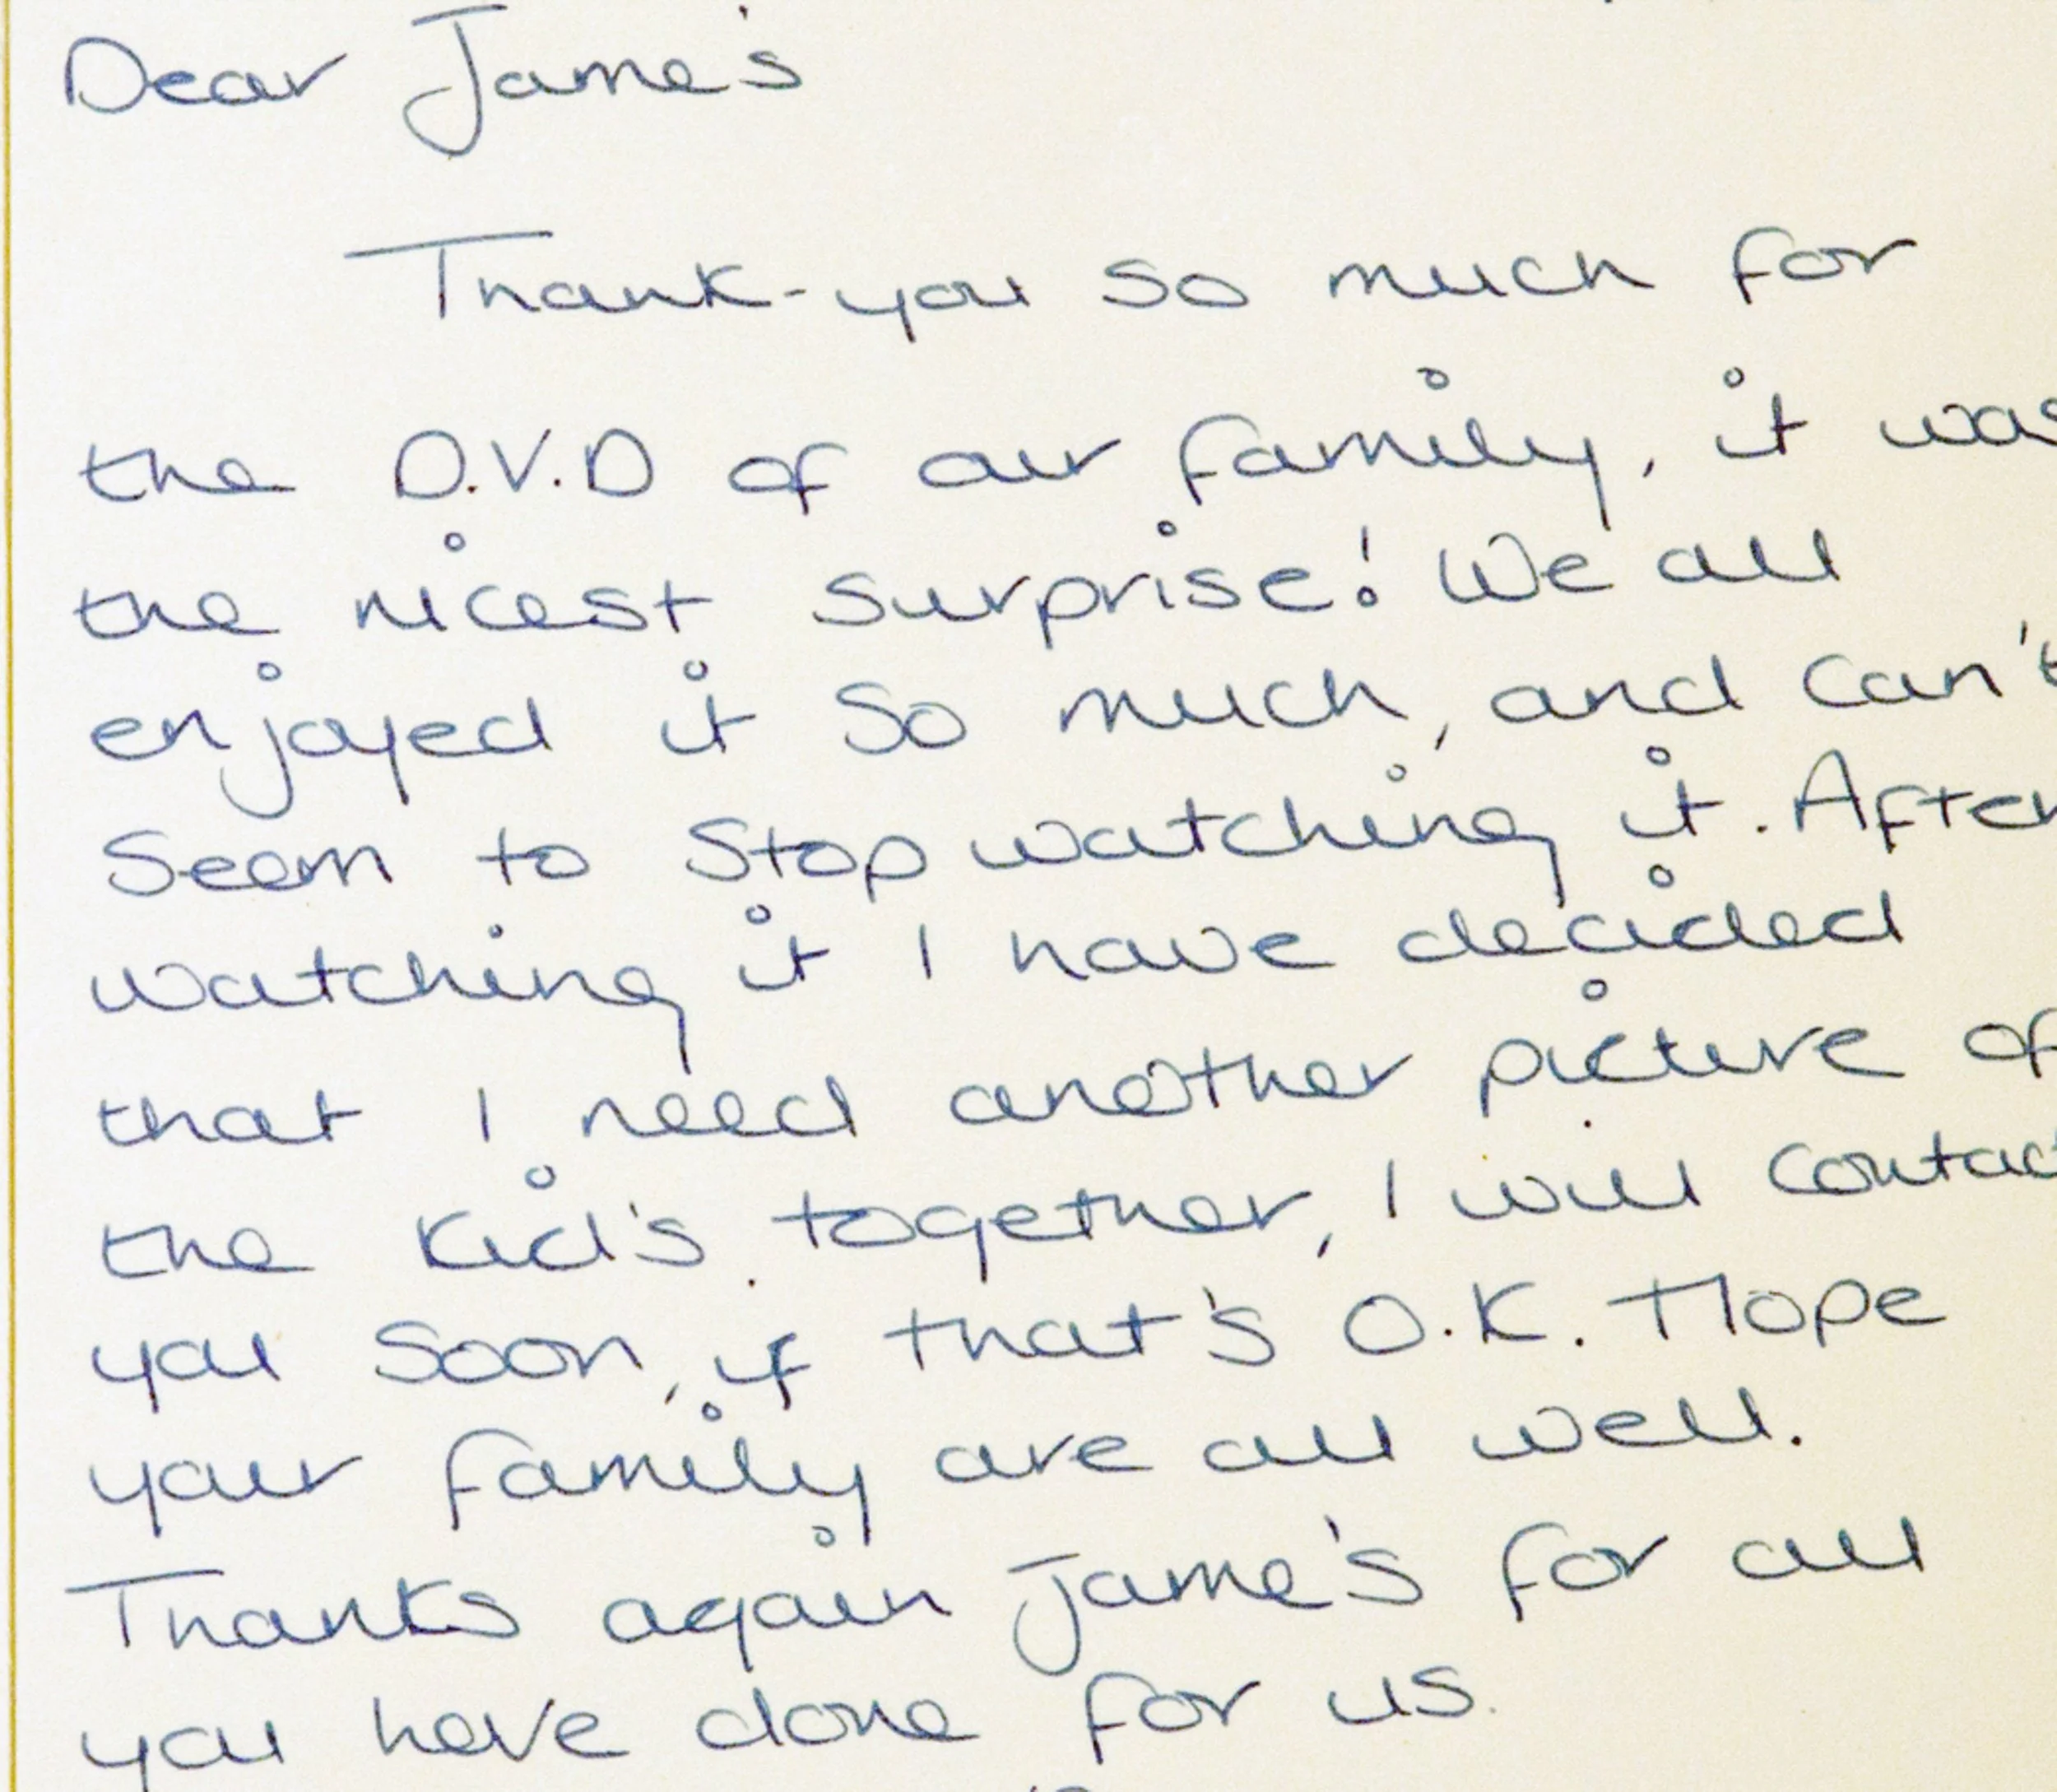 Dear Jame's
Thank-you so much for
the D.V.D of our family, it was
the nicest surprise! We all
enjoyed it so much, and can't
seem to stop watching it. After
watching it I have decided
that I need another picture of
the kid's together, I will contact
you soon, if that's O.K. Hope
your family are all well.
Thanks again Jame's for all
you have done for us.